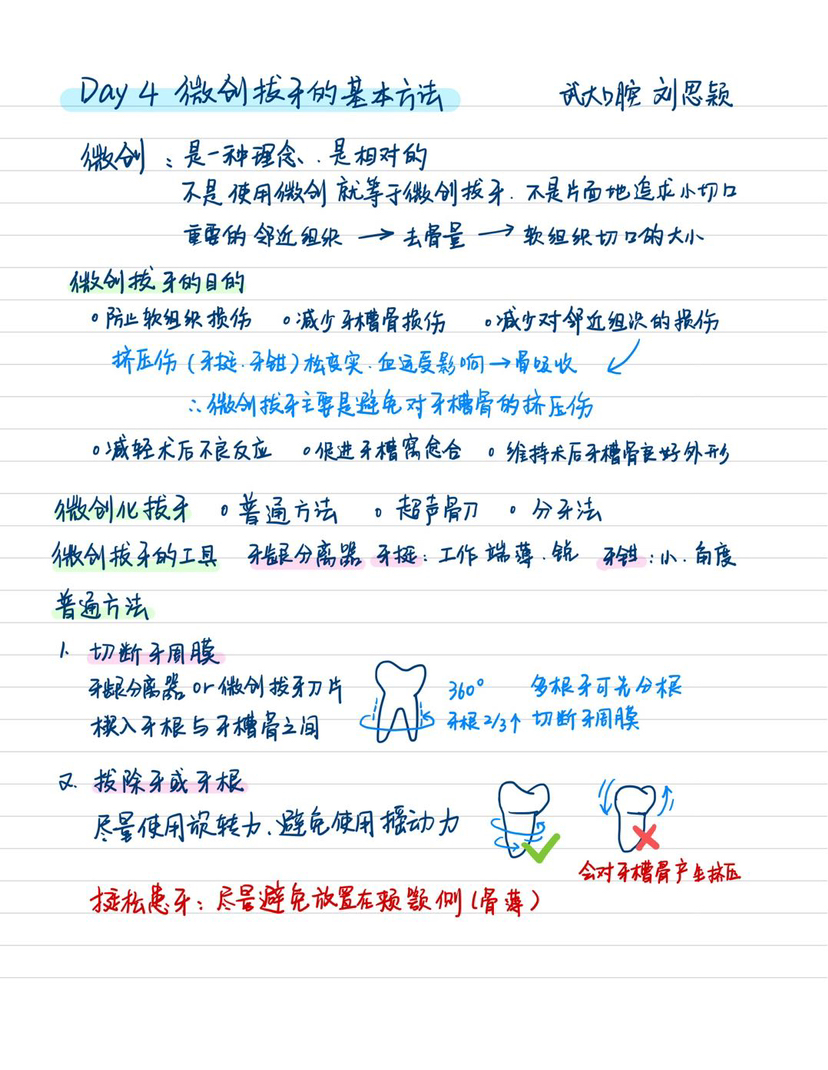 Day 4 微创拔牙的基本方法 武大口腔 刘思颖
微创：是一种理念、是相对的
不是使用微创就等于微创拔牙．不是片面地追求小切口
重要的邻近组织 → 去骨量 → 软组织切口的大小
微创拔牙的目的
防止软组织损伤 减少牙槽骨损伤 减少对邻近组织的损伤
挤压伤（牙挺．牙钳）松变实．血运受影响→骨吸收
∴微创拔牙主要是避免对牙槽骨的挤压伤
减轻术后不良反应 促进牙槽窝愈合 维持术后牙槽骨良好外形
微创化拔牙 普通方法 超声骨刀 分牙法
微创拔牙的工具 牙龈分离器 牙挺：工作端薄．锐 牙钳：小．角度
普通方法
1. 切断牙周膜
牙龈分离器 or 微创拔牙刀片
楔入牙根与牙槽骨之间
360° 多根牙可先分根
牙根2/3↑ 切断牙周膜
2. 拔除牙或牙根
尽量使用旋转力、避免使用摇动力
会对牙槽骨产生挤压
挺松患牙：尽量避免放置在颊颚侧（骨薄）